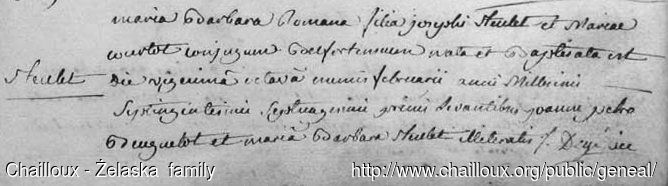 maria Barbara Romana filia josephi Heulet et Mariae
courtot conjugum Belfortensium nata et Baptisata est
Heulet
die vigesimâ octavâ mensis februarii anni Millesimi
Septingintesimi Septuagesimi primi Levantibus joanne petro
et mariâ Barbara Heulet illiteratis
Chailloux - Żelaska family
http://www.chailloux.org/public/geneal/